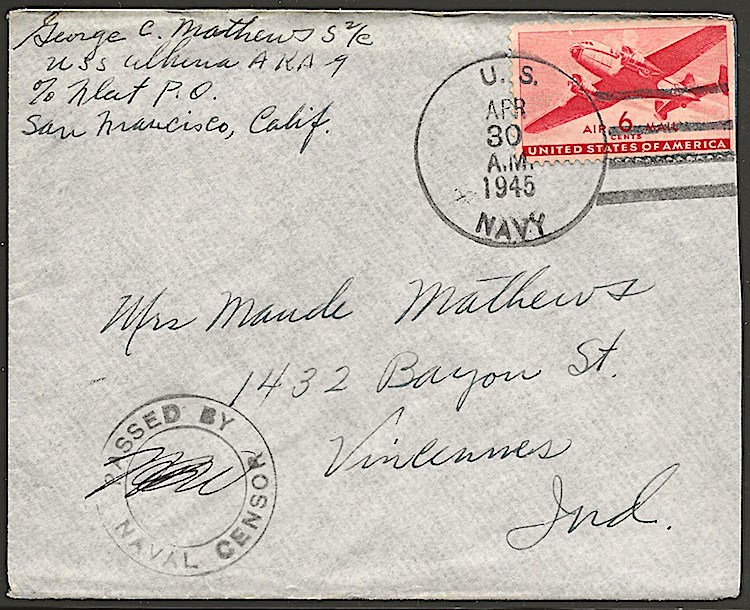 George C. Mathews S 2/c
USS Alhena AKA 9
% Fleet P.O.
San Francisco, Calif.
U. S.
APR
30
A.M.
1945
NAVY
AIR 6 MAIL
CENTS
UNITED STATES OF AMERICA
Mrs Maude Mathews
1432 Bayou St.
Vincennes
Ind.
PASSED BY
NAVAL CENSOR